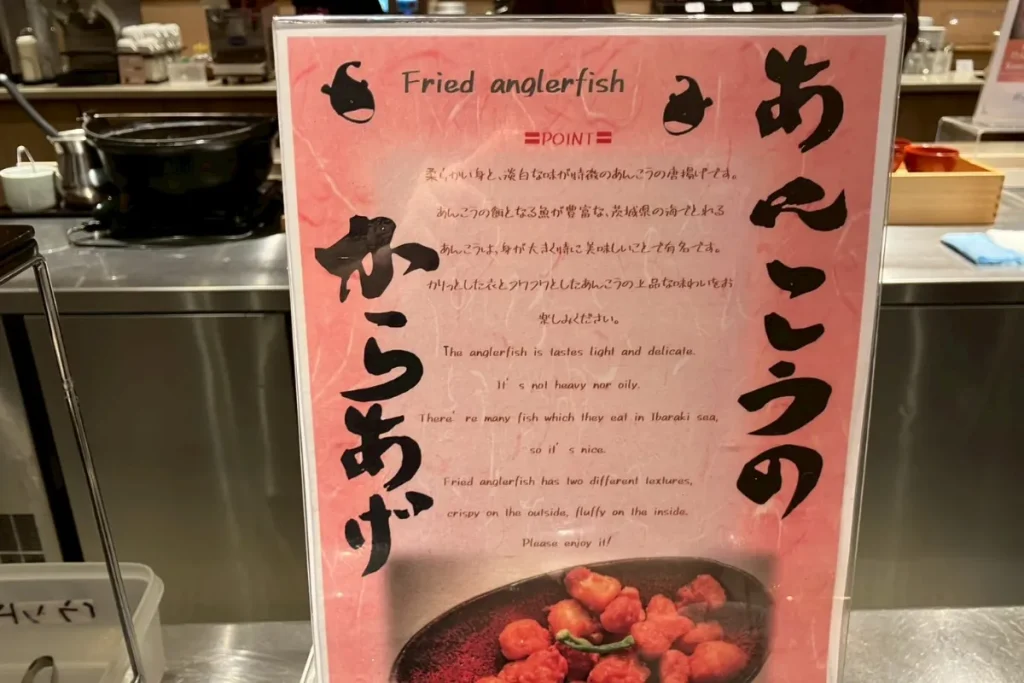 Fried anglerfish
あんこうの
からあげ
〓POINT〓
柔らかい身と、淡白な味が特徴のあんこうの唐揚げです。
あんこうの餌となる魚が豊富な、茨城県の海でとれる
あんこうは、身が大きく特に美味しいことで有名です。
カリっとした衣とフワフワとしたあんこうの上品な味わいをお
楽しみください。
The anglerfish is tastes light and delicate.
It's not heavy nor oily.
There're many fish which they eat in Ibaraki sea,
so it's nice.
Fried anglerfish has two different textures,
crispy on the outside, fluffy on the inside.
Please enjoy it!